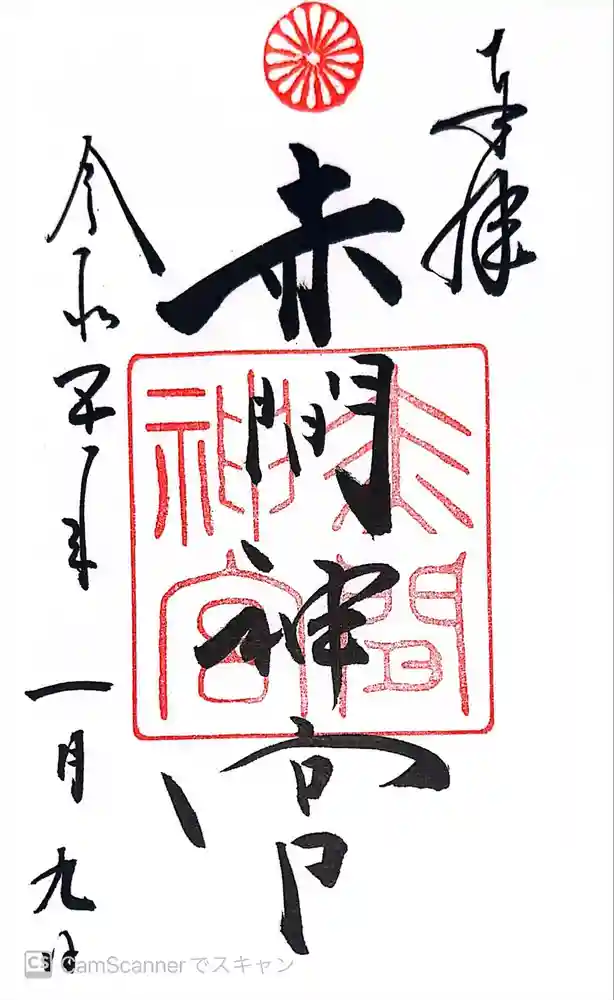 奉拝
赤間神宮
赤間神宮
令和四年一月九日
CS CamScannerでスキャン